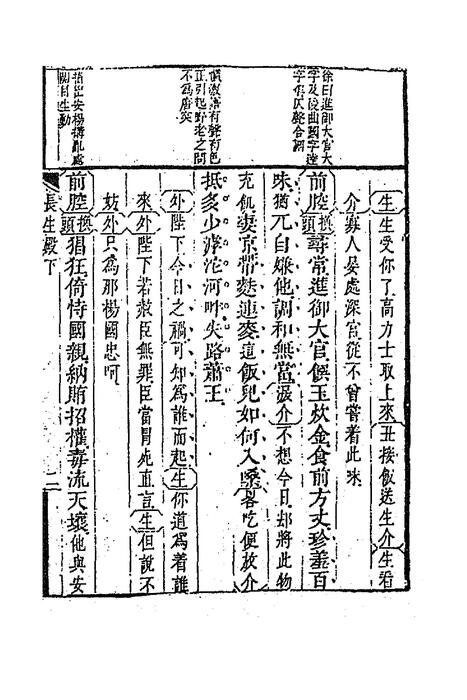 徐曰進御大官大
字及後曲國字達
字俱仄聲合調
側敘蕭有聲有色
正引起野老之問
不為唐突
指出安楊搆亂處
關目生動
生生受你了高力士取上來丑接飯送生介生看
介寡人晏處深宮從不曾嘗着此味
前腔換頭尋常進御大官饌玉炊金食前方丈珍羞百
味猶兀自嫌他調和無當淚介不想今日却將此物
充飢淒京帶麩連麥這飯兒如何入嗓畧吃便放介
抵多少滹沱河畔失路蕭王
外陛下今日之禍可知為誰而起生你道為着誰
來外陛下若赦臣無罪臣當冒死直言生但說不
妨外只為那楊國忠呵
前腔換頭猖狂倚恃國親納賄招權毒流天壤他與安
長生殿下
二